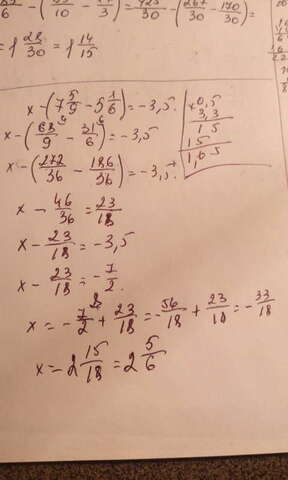 = 1 28/30 = 1 14/15
x-(7 5/9 - 5 1/6) = -3,5
x-(68/9 - 31/6) = -3,5
x-(272/36 - 186/36) = -3,5
x - 46/36 = 23/18
x - 23/18 = -3,5
x - 23/18 = -7/2
x = -7/2 + 23/18 = -56/18 + 23/18 = -33/18
x = -2 15/18 = 2 5/6
x 0,5
3,3
15
15
1,65